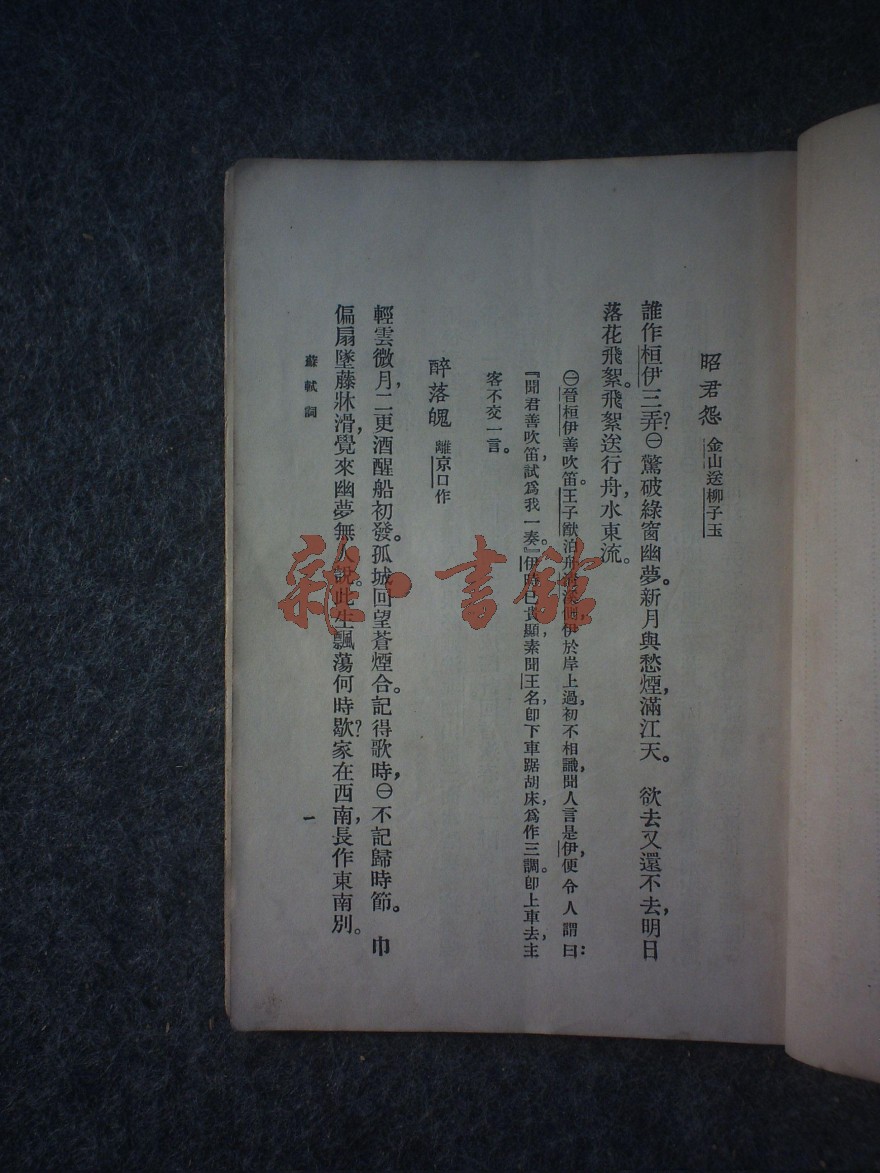 昭君怨 金山送柳子玉
誰作桓伊三弄?㊀驚破綠窗幽夢。新月與愁煙,滿江天。 欲去又還不去,明日
落花飛絮。飛絮送行舟,水東流。
㊀晉桓伊善吹笛。王子猷泊舟淸溪側,伊於岸上過,初不相識,聞人言是伊,便令人謂曰:
『聞君善吹笛,試爲我一奏。』伊時已貴顯,素聞王名,卽下車踞胡床,爲作三調。卽上車去,主
客不交一言。
醉落魄 離京口作
輕雲微月,二更酒醒船初發。孤城回望蒼煙合。記得歌時,㊀不記歸時節。 巾
偏扇墜藤牀滑,覺來幽夢無人說。此生飄蕩何時歇?家在西南,長作東南別。
蘇軾詞
一
雜·書館